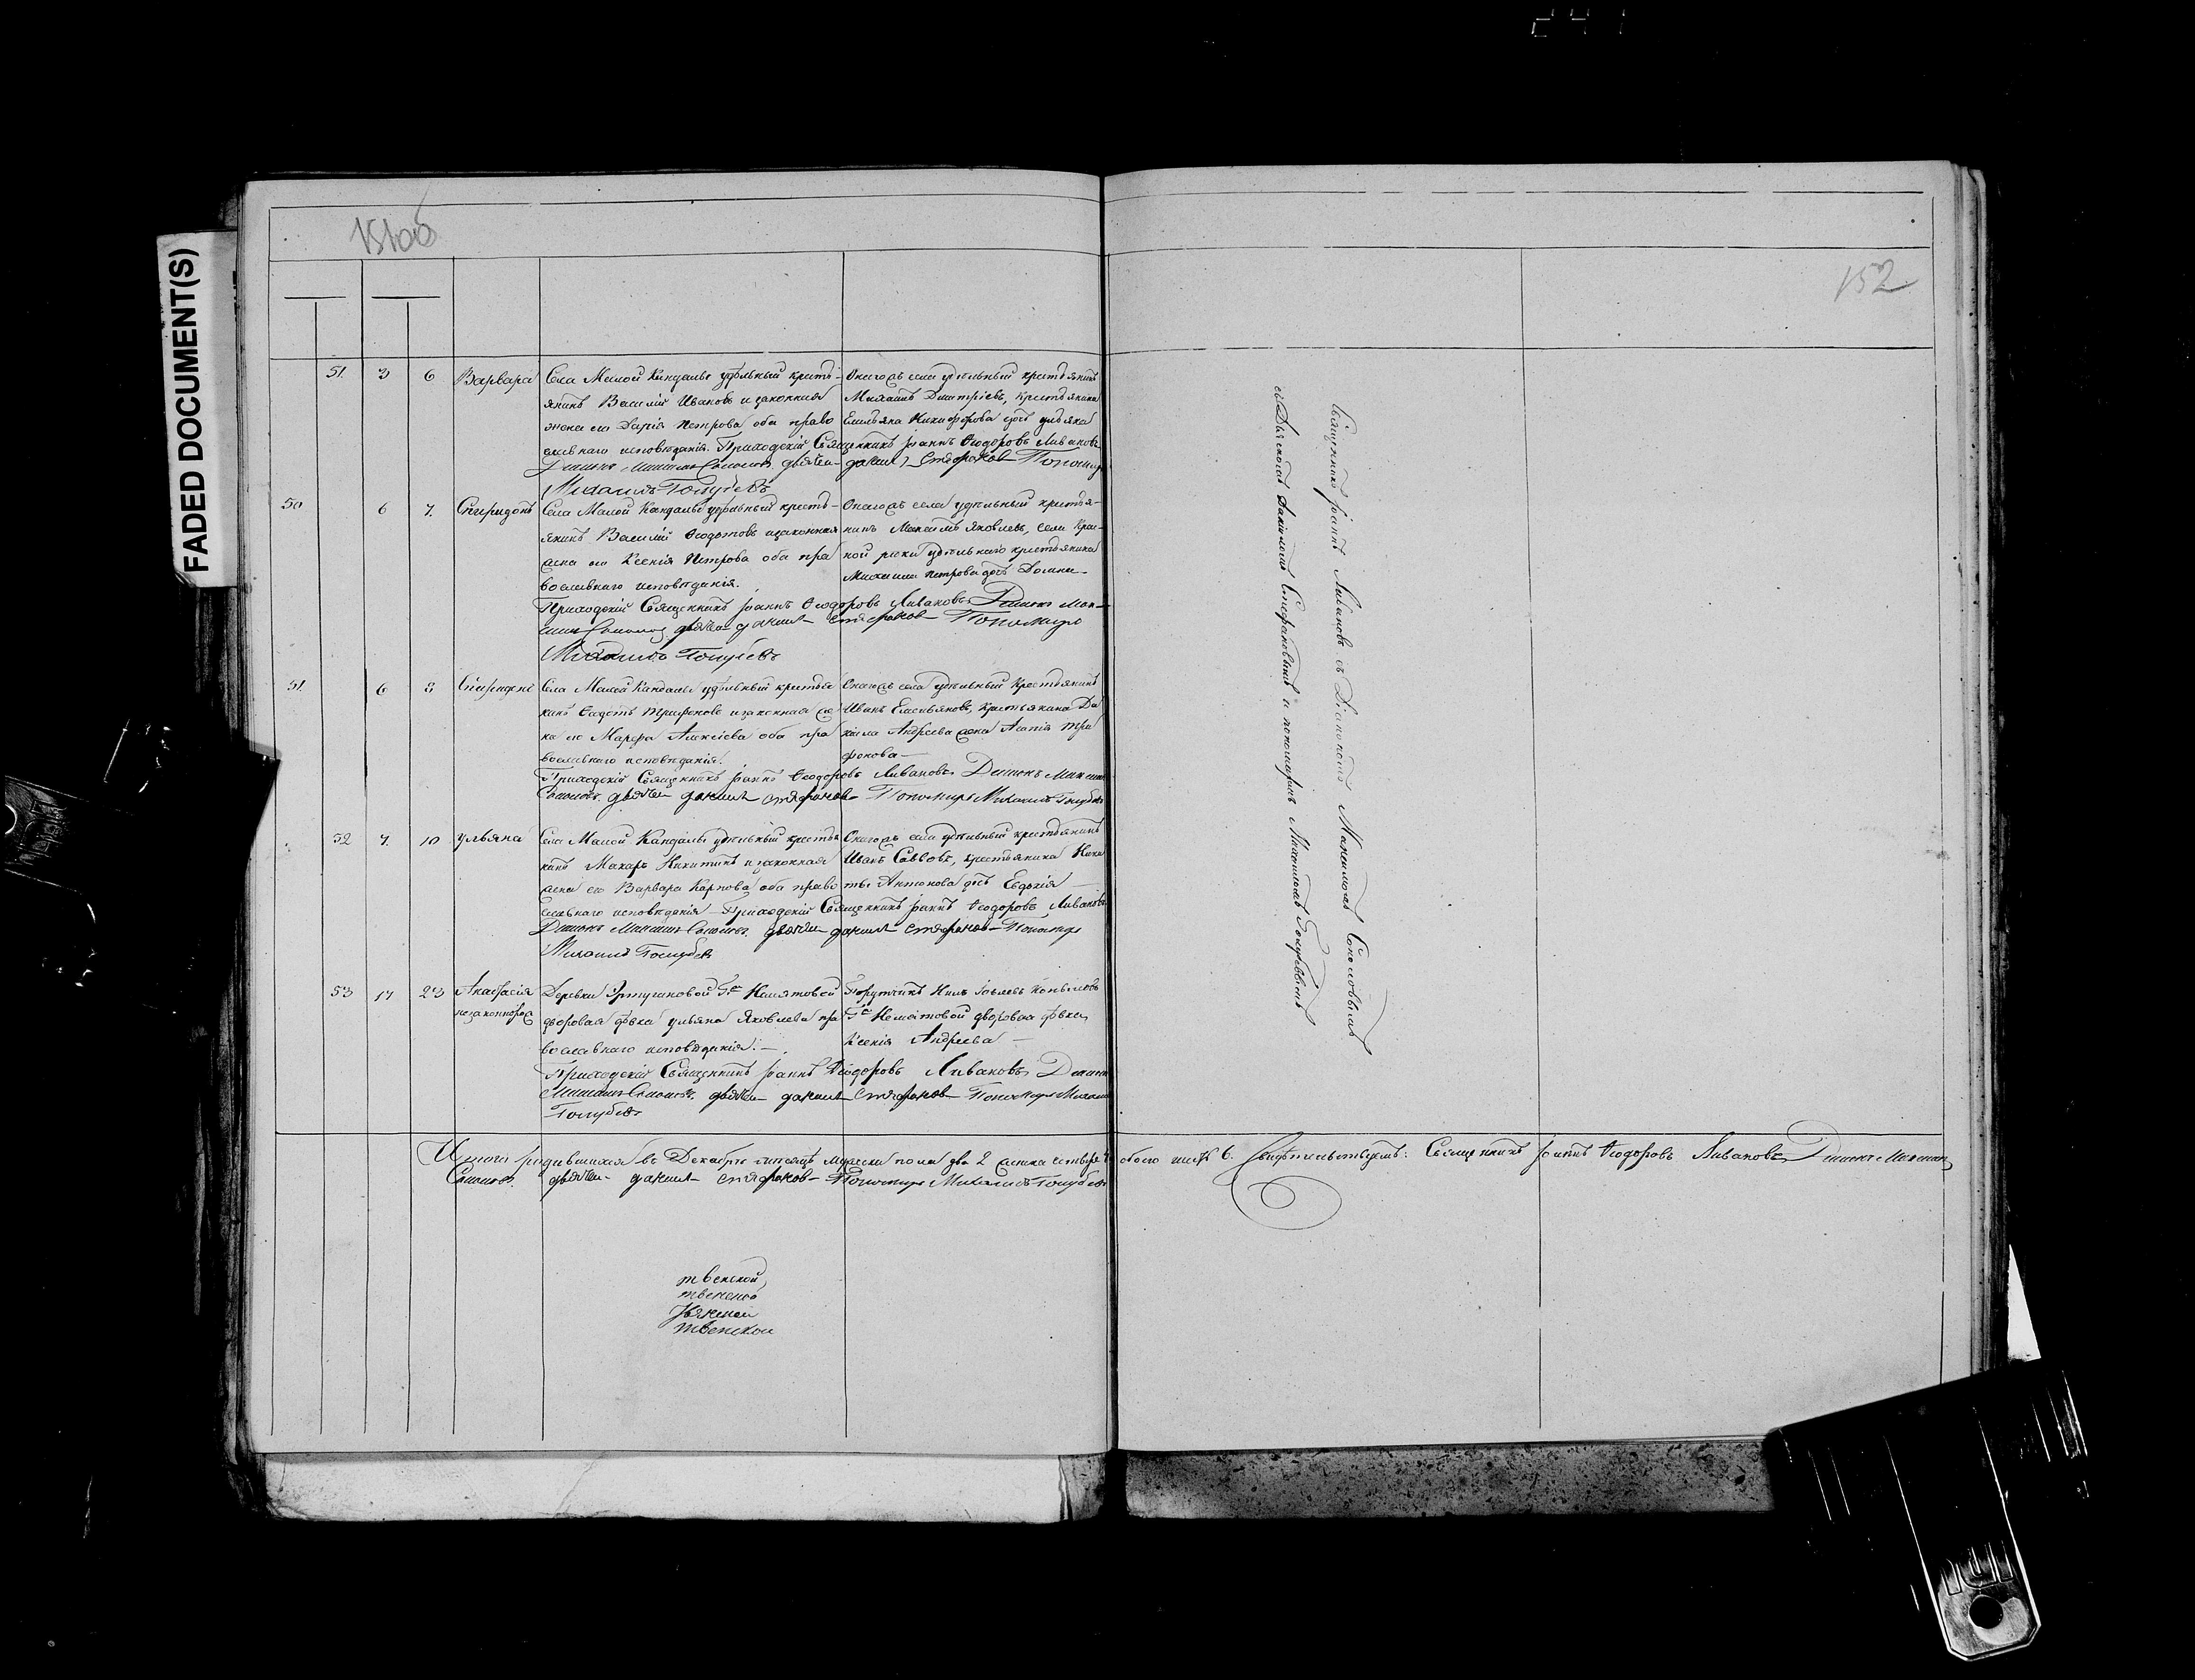 151об
152
FADED DOCUMENT(S)
51. 3 6 Варвара
Села Малой Кандалы удѣльный кресть-
янинъ Василій Ивановъ и законная
жена его Дарія Петрова оба право
славнаго исповѣданія. Приходскій Священникъ Іоаннъ Ѳеодоровъ Ливановъ
Діаконъ Максимъ Соколовъ дьячекъ данилъ Стефановъ Пономарь
Михаилъ Голубевъ
Онагожъ села удѣльный крестьянинъ
Михаилъ Дмитріевъ, крестьянина
Емельяна Никифорова дочь
50 6 7. Спиридонъ
Села Малой Кандалы удѣльный кресть-
янинъ Василій Ѳедотовъ и законная
жена его Ксенія Петрова оба пра
вославнаго исповѣданія.
Приходскій Священникъ Іоаннъ Ѳеодоровъ Ливановъ Діаконъ Мак-
симъ Соколовъ дьячекъ данилъ стефановъ Пономарь
Михаилъ Голубевъ
Онагожъ села удѣльный крестья-
нинъ Максимъ Яковлевъ, села Крас-
ной рѣки удѣльнаго крестьянина
Михаила Петрова дочь Домна
51. 6 8 Спиридонъ
Села Малой Кандалы удѣльный крестья
нинъ Ѳедотъ Трифоновъ и законная же
на его Марѳа Алексіева оба пра
вославнаго исповѣданія.
Приходскій Священникъ Іоаннъ Ѳеодоровъ Ливановъ Діаконъ Максимъ
Соколовъ. дьячекъ данилъ стефановъ Пономарь Михаилъ Голубевъ
Онагожъ села удѣльный Крестьянинъ
Иванъ Емельяновъ, крестьянина Да
нила Андреева жена Агапія Три
фонова
52 7. 10 Ульяна
Села Малой Кандалы удѣльный крестья
нинъ Макаръ Никитинъ и законная
жена его Варвара Карпова оба право
славнаго исповѣданія Приходскій Священникъ Іоаннъ Ѳеодоровъ Ливановъ
Діаконъ Максимъ Соколовъ. дьячекъ данилъ стефановъ Пономарь
Михаилъ Голубевъ
Онагожъ села удѣльный крестьянинъ
Иванъ Савовъ, крестьянина Ники
ты Антонова дочь Евдокія
53 17 23 Анастасія
незаконнорож
Деревни Г-жи
дворовая дѣвка Ульяна Яковлева пра
вославнаго исповѣданія.
Приходскій Священникъ Іоаннъ Ѳеодоровъ Ливановъ Діаконъ
Максимъ Соколовъ. дьячекъ данилъ стефановъ Пономарь Михаилъ
Голубевъ
Порутчикъ
дворовая дѣвка
Ксенія Андреева
Священникъ Іоаннъ Ливановъ съ Діакономъ Максимомъ Соколовымъ
съ Дьячкомъ Даніиломъ Стефановымъ и пономаремъ Михаиломъ Голубевымъ
Итого родившихся въ Декабрѣ мѣсяцѣ мужеска пола два 2 женска четыре обоего шесть 6. Свидѣтельствуемъ: Священникъ Іоаннъ Ѳеодоровъ Ливановъ Діаконъ Максимъ
Соколовъ. дьячекъ данилъ стефановъ Пономарь Михаилъ Голубевъ
твенской
твенской
твенской